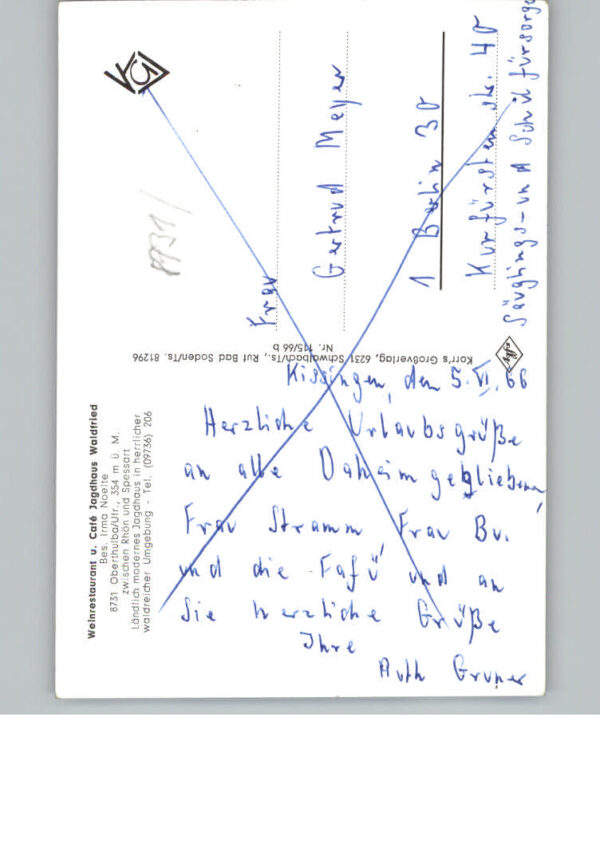 Weinrestaurant u. Café Jagdhaus Waldfried
Bes. Irma Noelte
8731 Oberthulba/Ufr., 354 m Ü. M.
zwischen Rhön und Spessart
Ländlich modernes Jagdhaus in herrlicher
waldreicher Umgebung - Tel. (09736) 206
Kissingen, den 5. VI. 66
Herzliche Urlaubsgrüße
an alle Daheim gebliebenen,
Frau Stramm, Frau Bu.
und die Fafü und an
Sie herzliche Grüße
Ihre
Ruth Gruner
Korr's Großverlag, 6231 Schwalbach/Ts., Ruf Bad Soden/Ts. 81296
Nr. 115/66 b
Frau
Gertrud Meyer
1 Berlin 30
Kurfürstenstr. 40
Säuglings- und